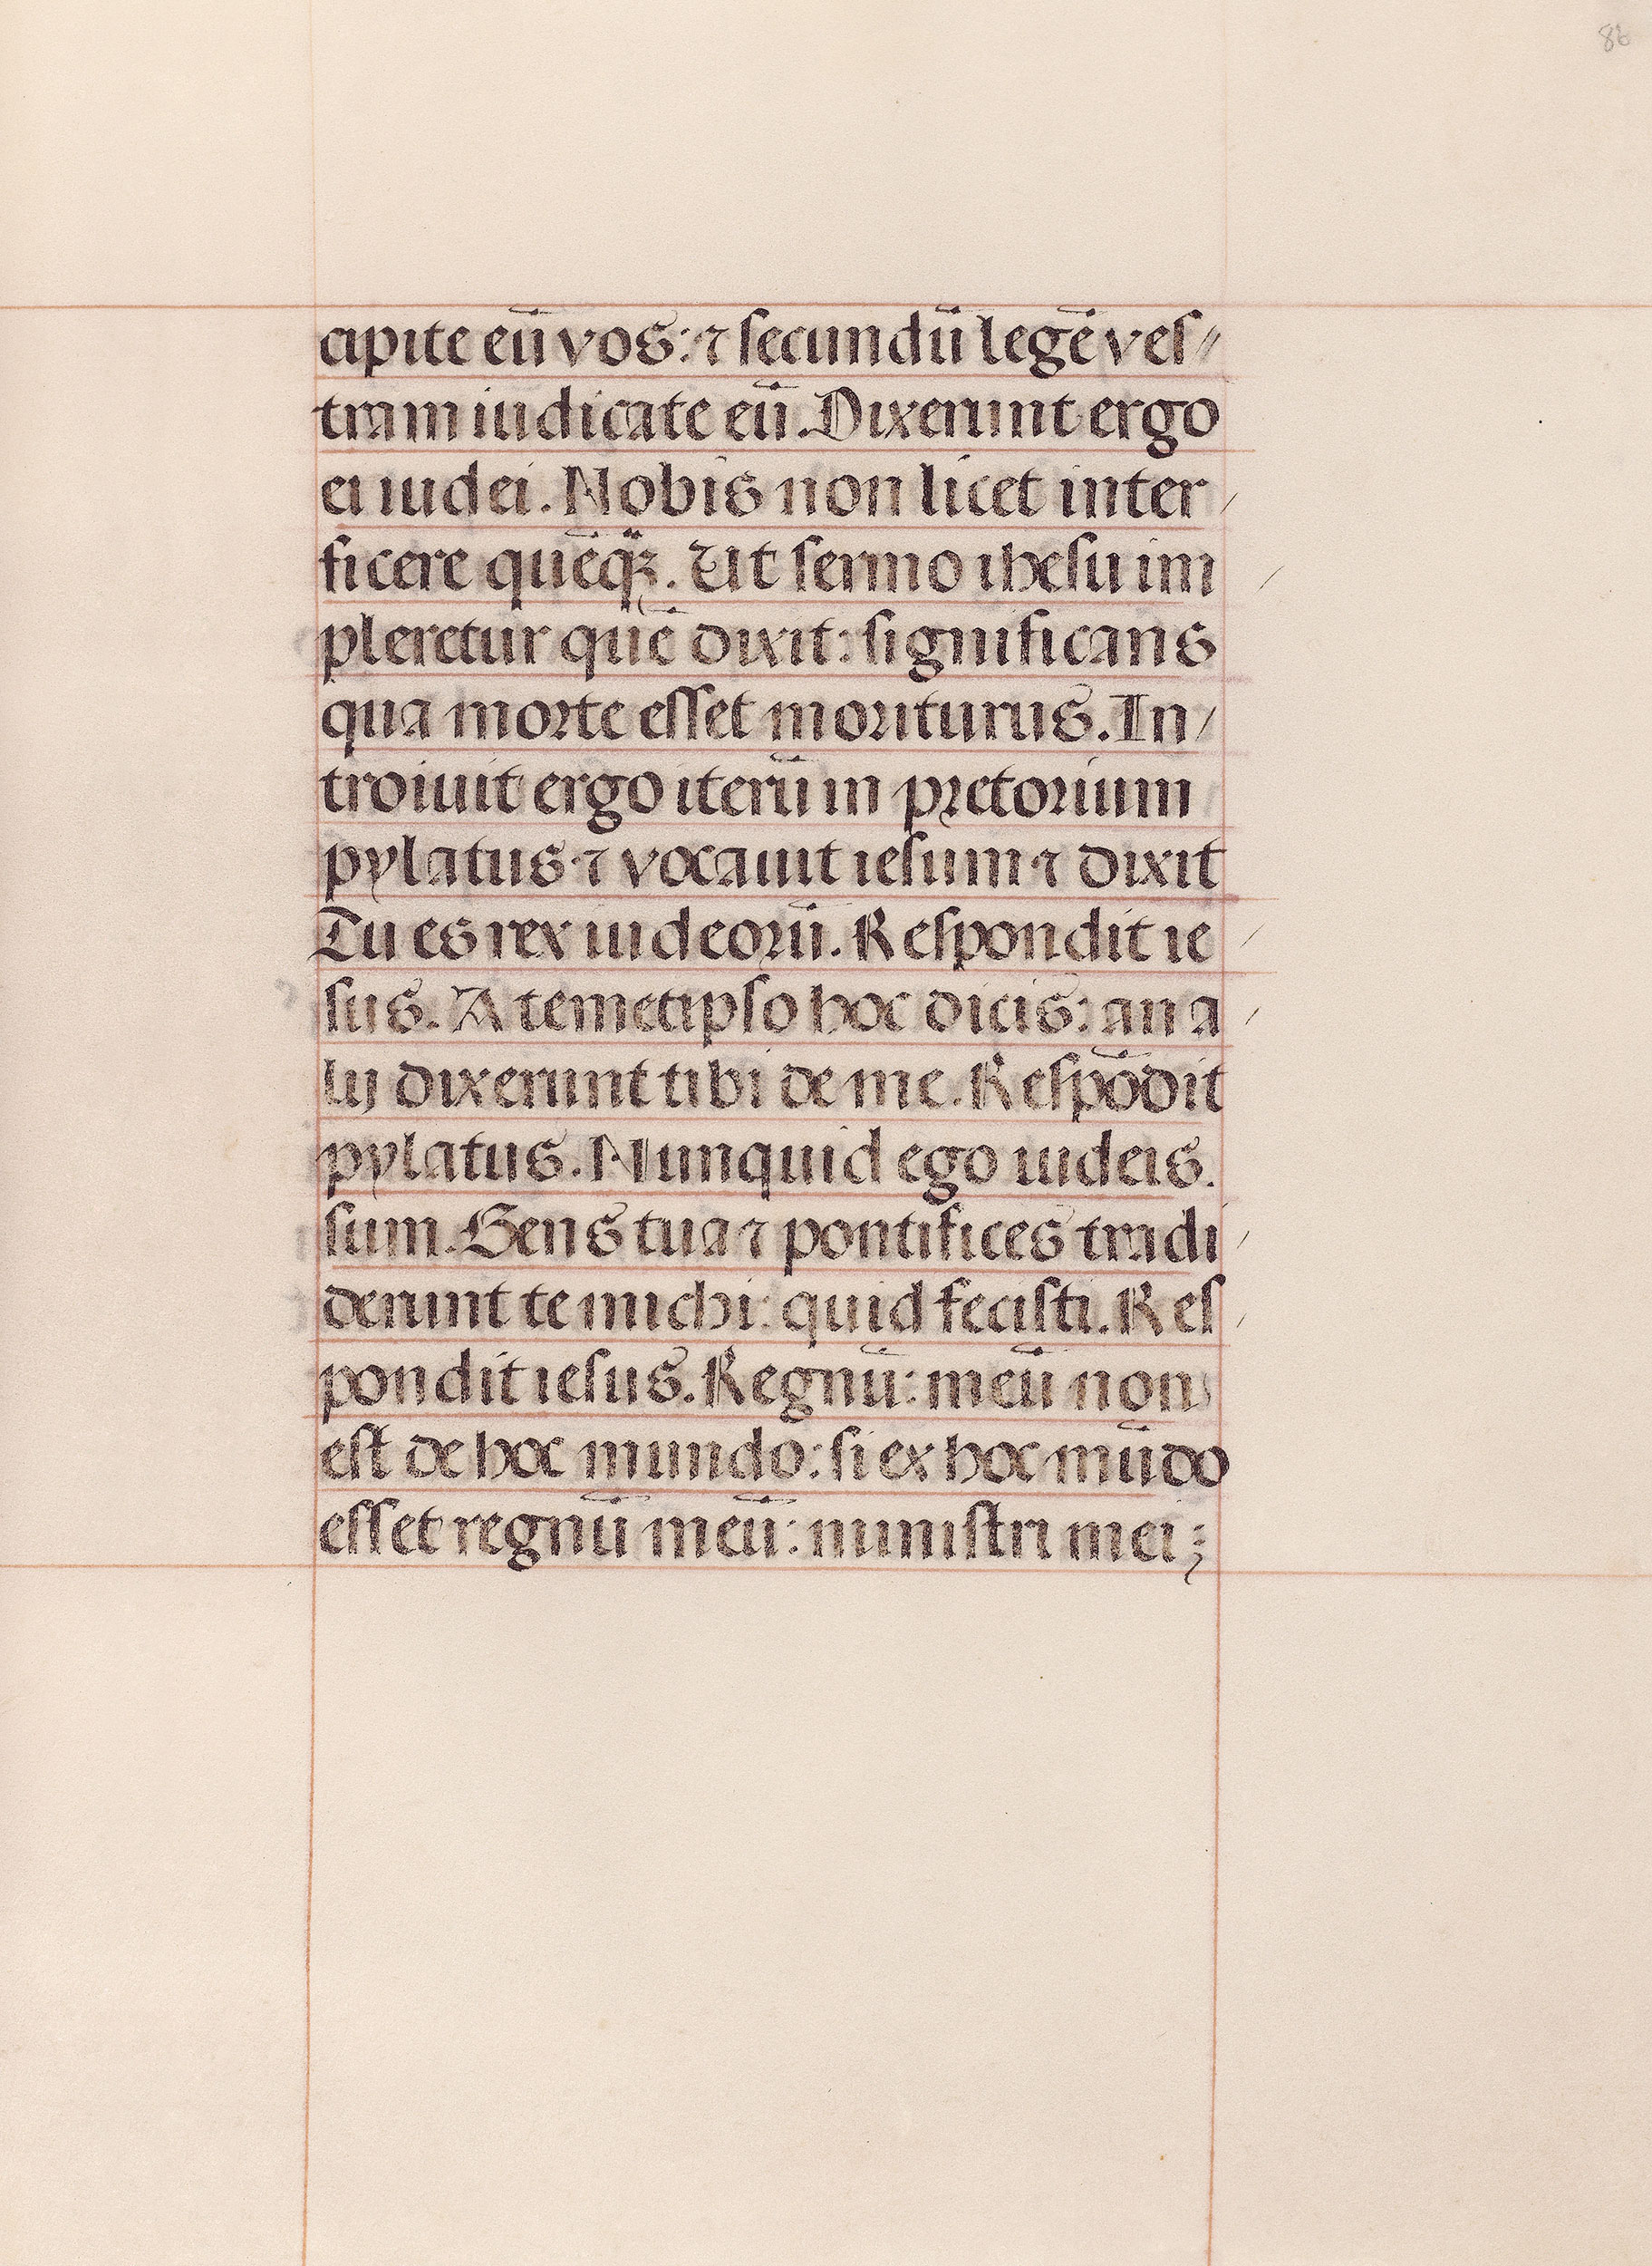 86
cipite eū vos: ⁊ secundū legē ves⸗
tram iudicate eū. Dixerunt ergo
ei iudei. Nobis non licet inter /
ficere quēqꝫ. Ut sermo ihesu im /
pleretur quē dixit: significans
qua morte esset moriturus. In /
troiuit ergo iterū in pretorium
pylatus ⁊ vocauit iesum ⁊ dixit
Tu es rex iudeorū. Respondit ie /
sus. A temetipso hoc dicis: an a /
lij dixerunt tibi de me. Respōdit
pylatus. Nunquid ego iudeis.
sum. Gens tua ⁊ pontifices tradi /
derunt te michi: quid fecisti. Res /
pondit iesus. Regnū: meū non
est de hoc mundo: si ex hoc mūdo
esset regnū meū: ministri mei;